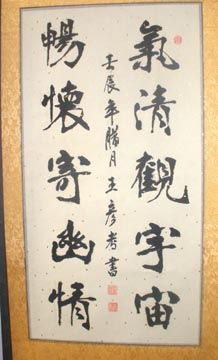 氣清觀宇宙
暢懷寄幽情
壬辰年臘月王彥青書